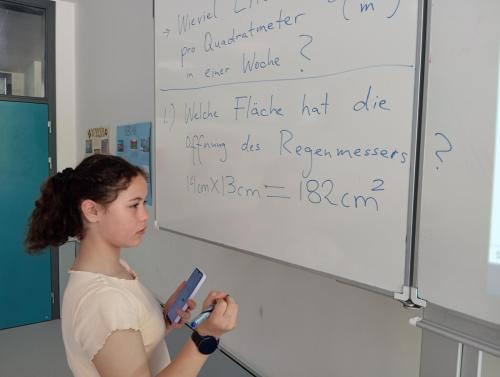 → Wieviel
pro Quadratmeter
in einer Woche ?
1.) Welche Fläche hat die
Öffnung des Regenmessers ?
14cm×13cm = 182cm²